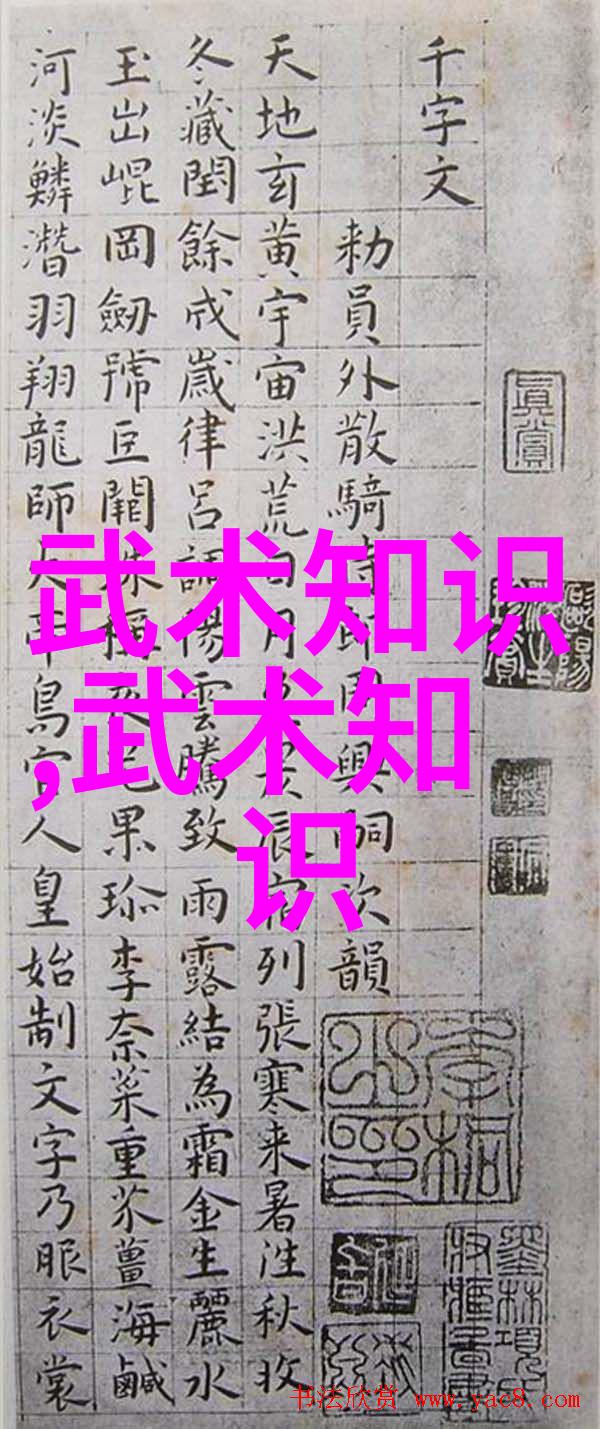 千字文
勑員外散騎侍郎周興嗣次韻
天地玄黄宇宙洪荒日月盈昃辰宿列張寒来暑往秋收
冬藏閏餘成歲律吕調陽雲騰致雨露結為霜金生麗水
玉出崐岡劒號巨闕珠稱夜光果珎李柰菜重芥薑海鹹
河淡鱗潛羽翔龍師火帝鳥官人皇始制文字乃服衣裳
眞賞
武术知识
,武术知
识
书法欣赏 www.yac8.com